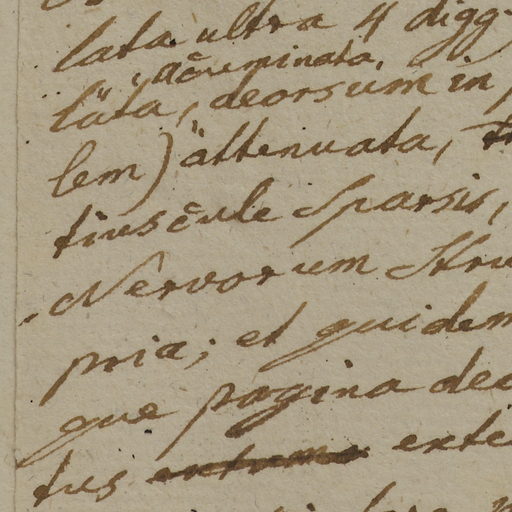 lata ultra 4 digg.
acuminata,
lata, deorsum in
lem) attenuata,
tiuscule sparsis,
Nervorum stru
pria; et quidem
que pagina deo
tus exte